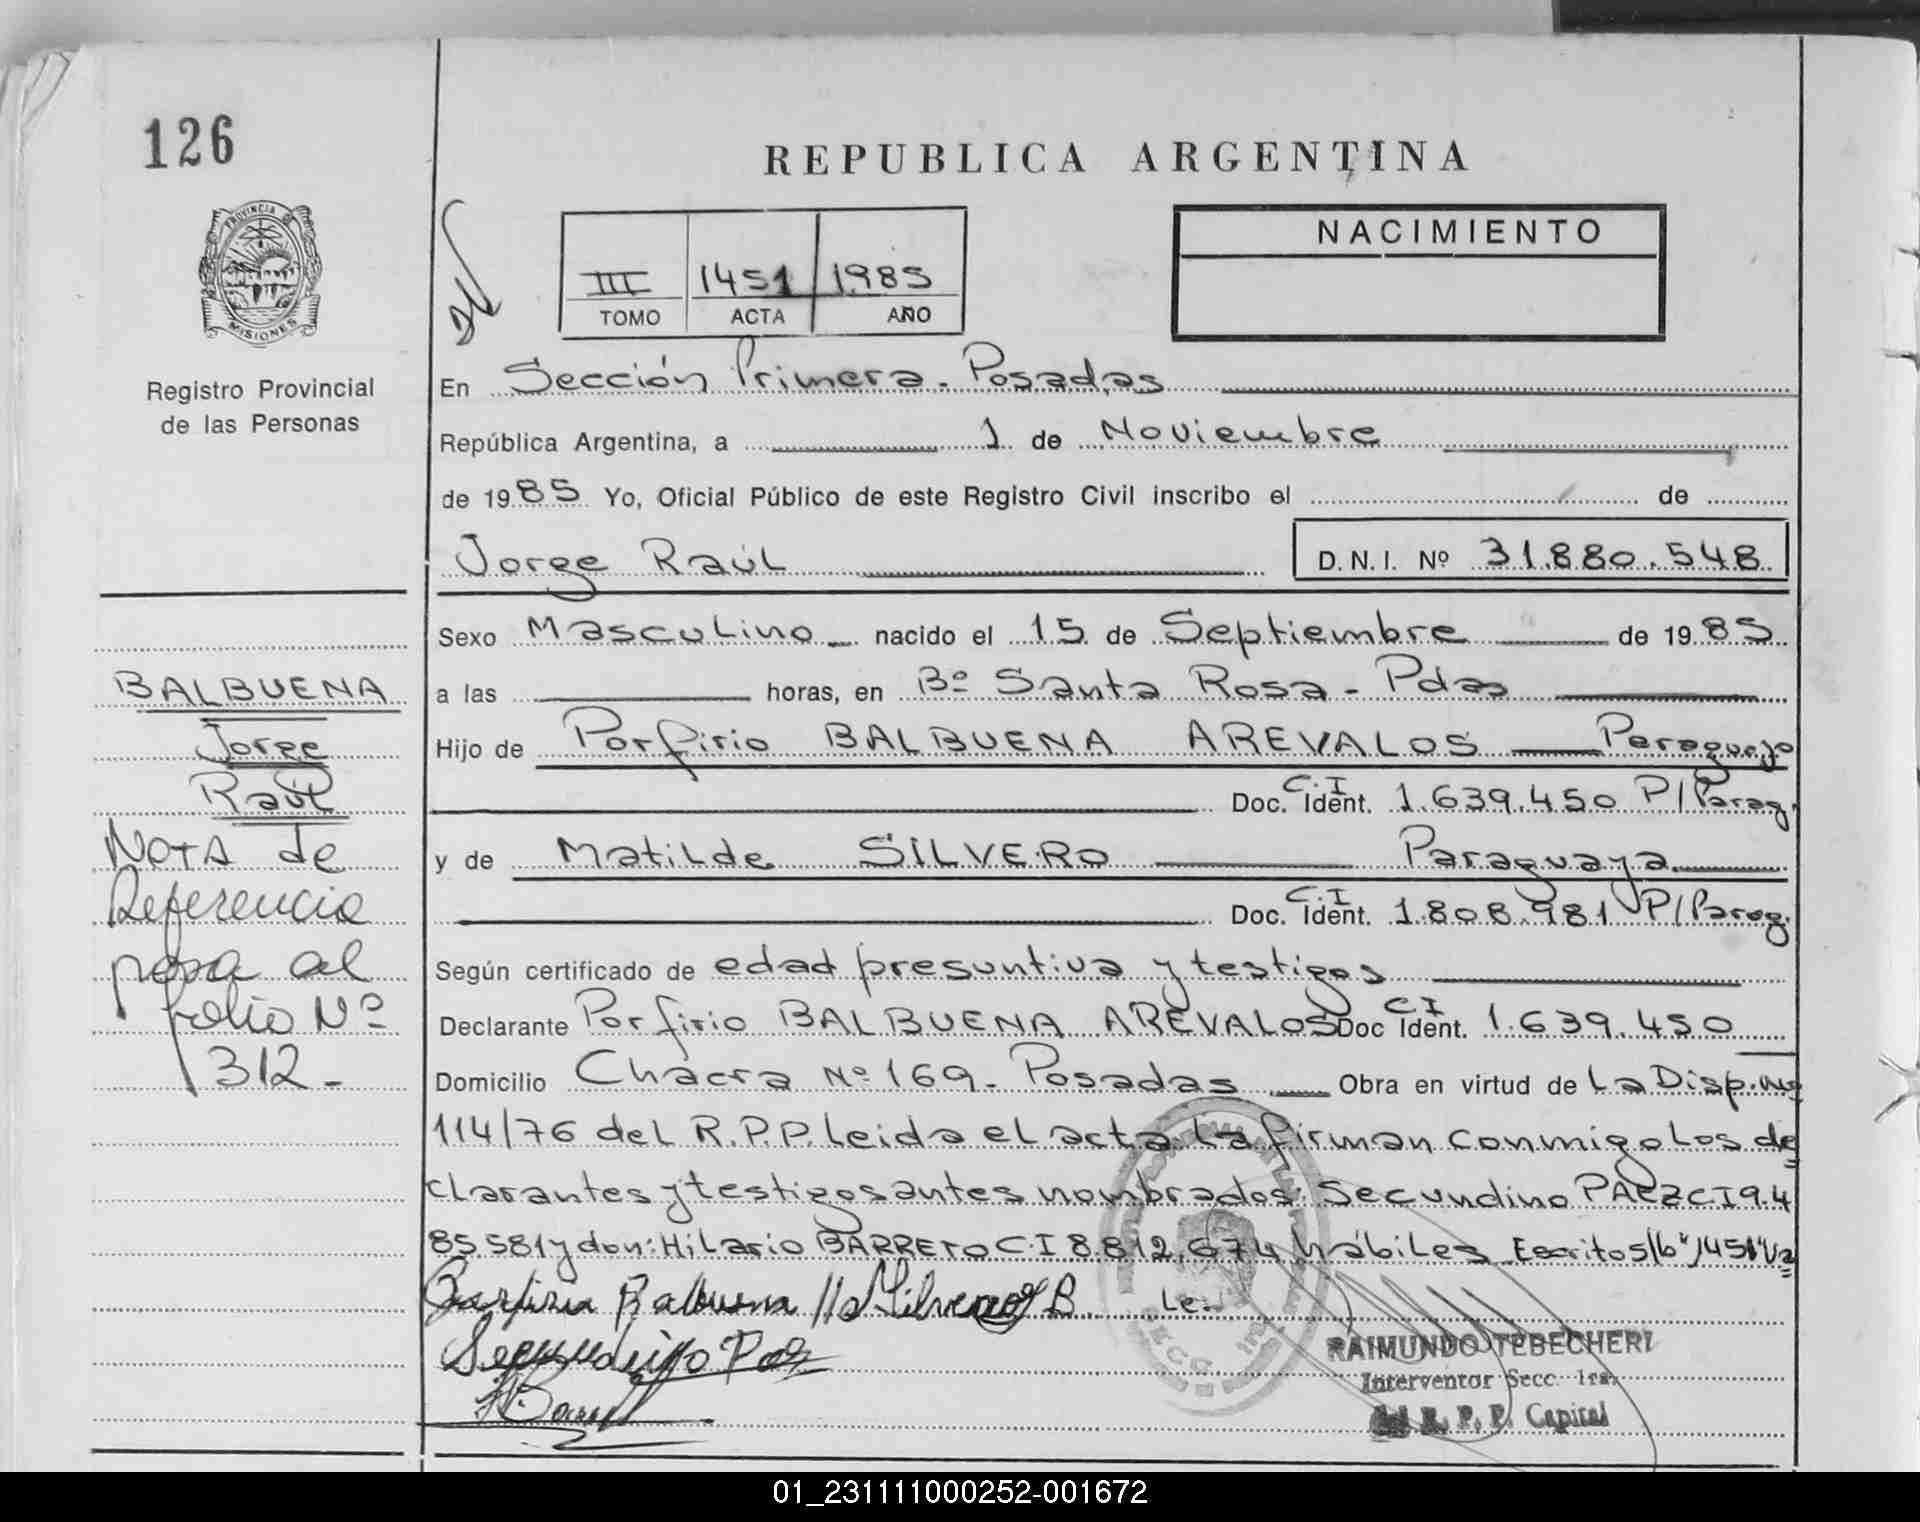 126
REPUBLICA ARGENTINA
PROVINCIA DE
MISIONES
Registro Provincial
de las Personas
III 1451 1985
TOMO ACTA AÑO
NACIMIENTO
En Sección Primera. Posadas
República Argentina, a 1 de Noviembre
de 1985 Yo, Oficial Público de este Registro Civil inscribo el de
Jorge Raúl D.N.I. Nº 31.880.548
Sexo Masculino nacido el 15 de Septiembre de 1985
a las horas, en Bº Santa Rosa - Pdas
Hijo de Porfirio BALBUENA AREVALOS Paraguayo
C.I
Doc. Ident. 1.639.450 P/Parag.
y de Matilde SILVERO Paraguaya
C.I
Doc. Ident. 1.808.981 P/Parag.
Según certificado de edad presuntiva y testigos
Declarante Porfirio BALBUENA AREVALOS Doc C I Ident. 1.639.450
Domicilio Chacra Nº 169 - Posadas Obra en virtud de La Disp. Nº
114/76 del R.P.P. Leida el acta La firman conmigo Los de
clarantes y testigos antes nombrados: Secundino PAEZ C I 9.4
85.581 y don: Hilario BARRETO C.I 8.812.674 hábiles Escritos/b"/451"Va
Le.
BALBUENA
Jorge
Raúl
NOTA de
Referencia
pasa al
folio Nº
312 -
Porfirio Balbuena
Secundino Paez
RAIMUNDO TEBECHERI
Interventor Secc. 1ra.
del R. P. P. Capital
01_231111000252-001672